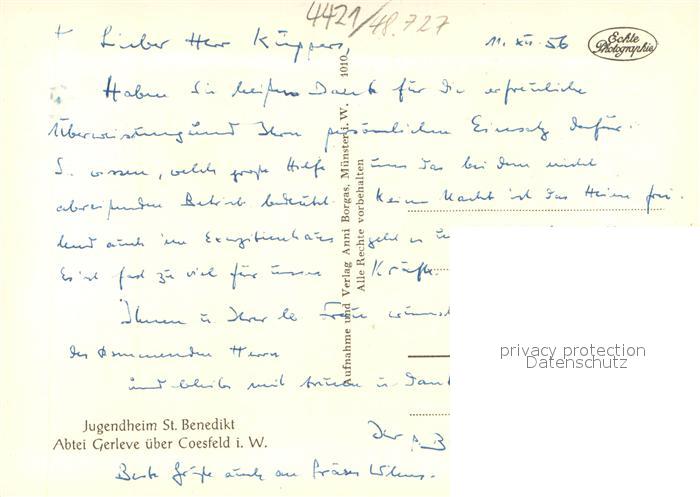 4421/48.727
+ Lieber Herr Küppers,
11. XII. 56
Echte Photographie
Haben Sie heißen Dank für die erfreuliche
Überweisung und Ihren persönlichen Einsatz dafür.
S. wissen, welch große Hilfe uns das bei dem nicht
abreißenden Betrieb bedeutet. Keine Nacht ist das Heim frei.
Und auch im Exerzitienhaus geht es
Es ist fast zu viel für unsere Kräfte.
Ihnen u. Ihrer lb Frau wünsch
des kommenden Herrn
und bleibe mit treuem u. Dank
Ihr
Beste Grüße auch an Präses
Aufnahme und Verlag Anni Borgas, Münster i. W. 1010
Alle Rechte vorbehalten
privacy protection
Datenschutz
Jugendheim St. Benedikt
Abtei Gerleve über Coesfeld i. W.